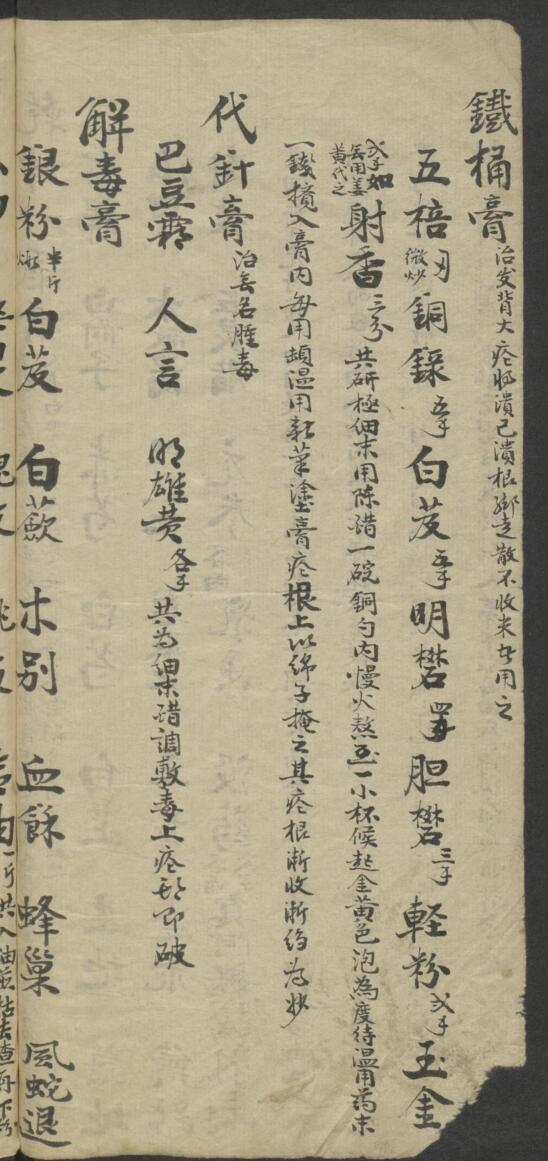 鐵桶膏 治发背大疮將潰已潰根脚走散不收束者用之
五棓 微炒 銅錄 五子 白芨 五子 明礬 四子 胆礬 三子 軽粉 弍子 玉金
弍子如無用姜黄代之 射香 三分 共研極细末用陈醋一碗銅勺内慢火熬至一小杯候起金黄色泡為度待温用葯末
一錢攪入膏内每用頓温用新筆塗膏疮根上以绵子掩之其疮根漸收漸紧為妙
代針膏 治無名腫毒
巴豆霜 人言 明雄黄 各子 共為细末醋調敷毒上疮頭即破
解毒膏
銀粉 半斤 白芨 白蘞 木别 血餘 蜂巢 風蛇退